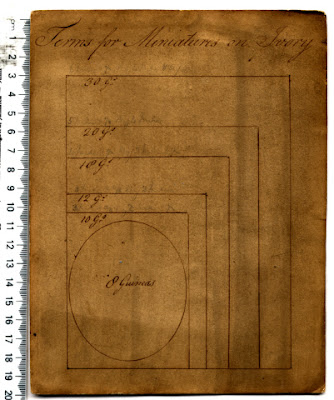 Terms for Miniatures on Ivory
30 Gs
20 Gs
12 Gs
10 Gs
8 Guineas
1
2
3
4
5
6
7
8
9
10
11
12
13
14
15
16
17
18
19
20